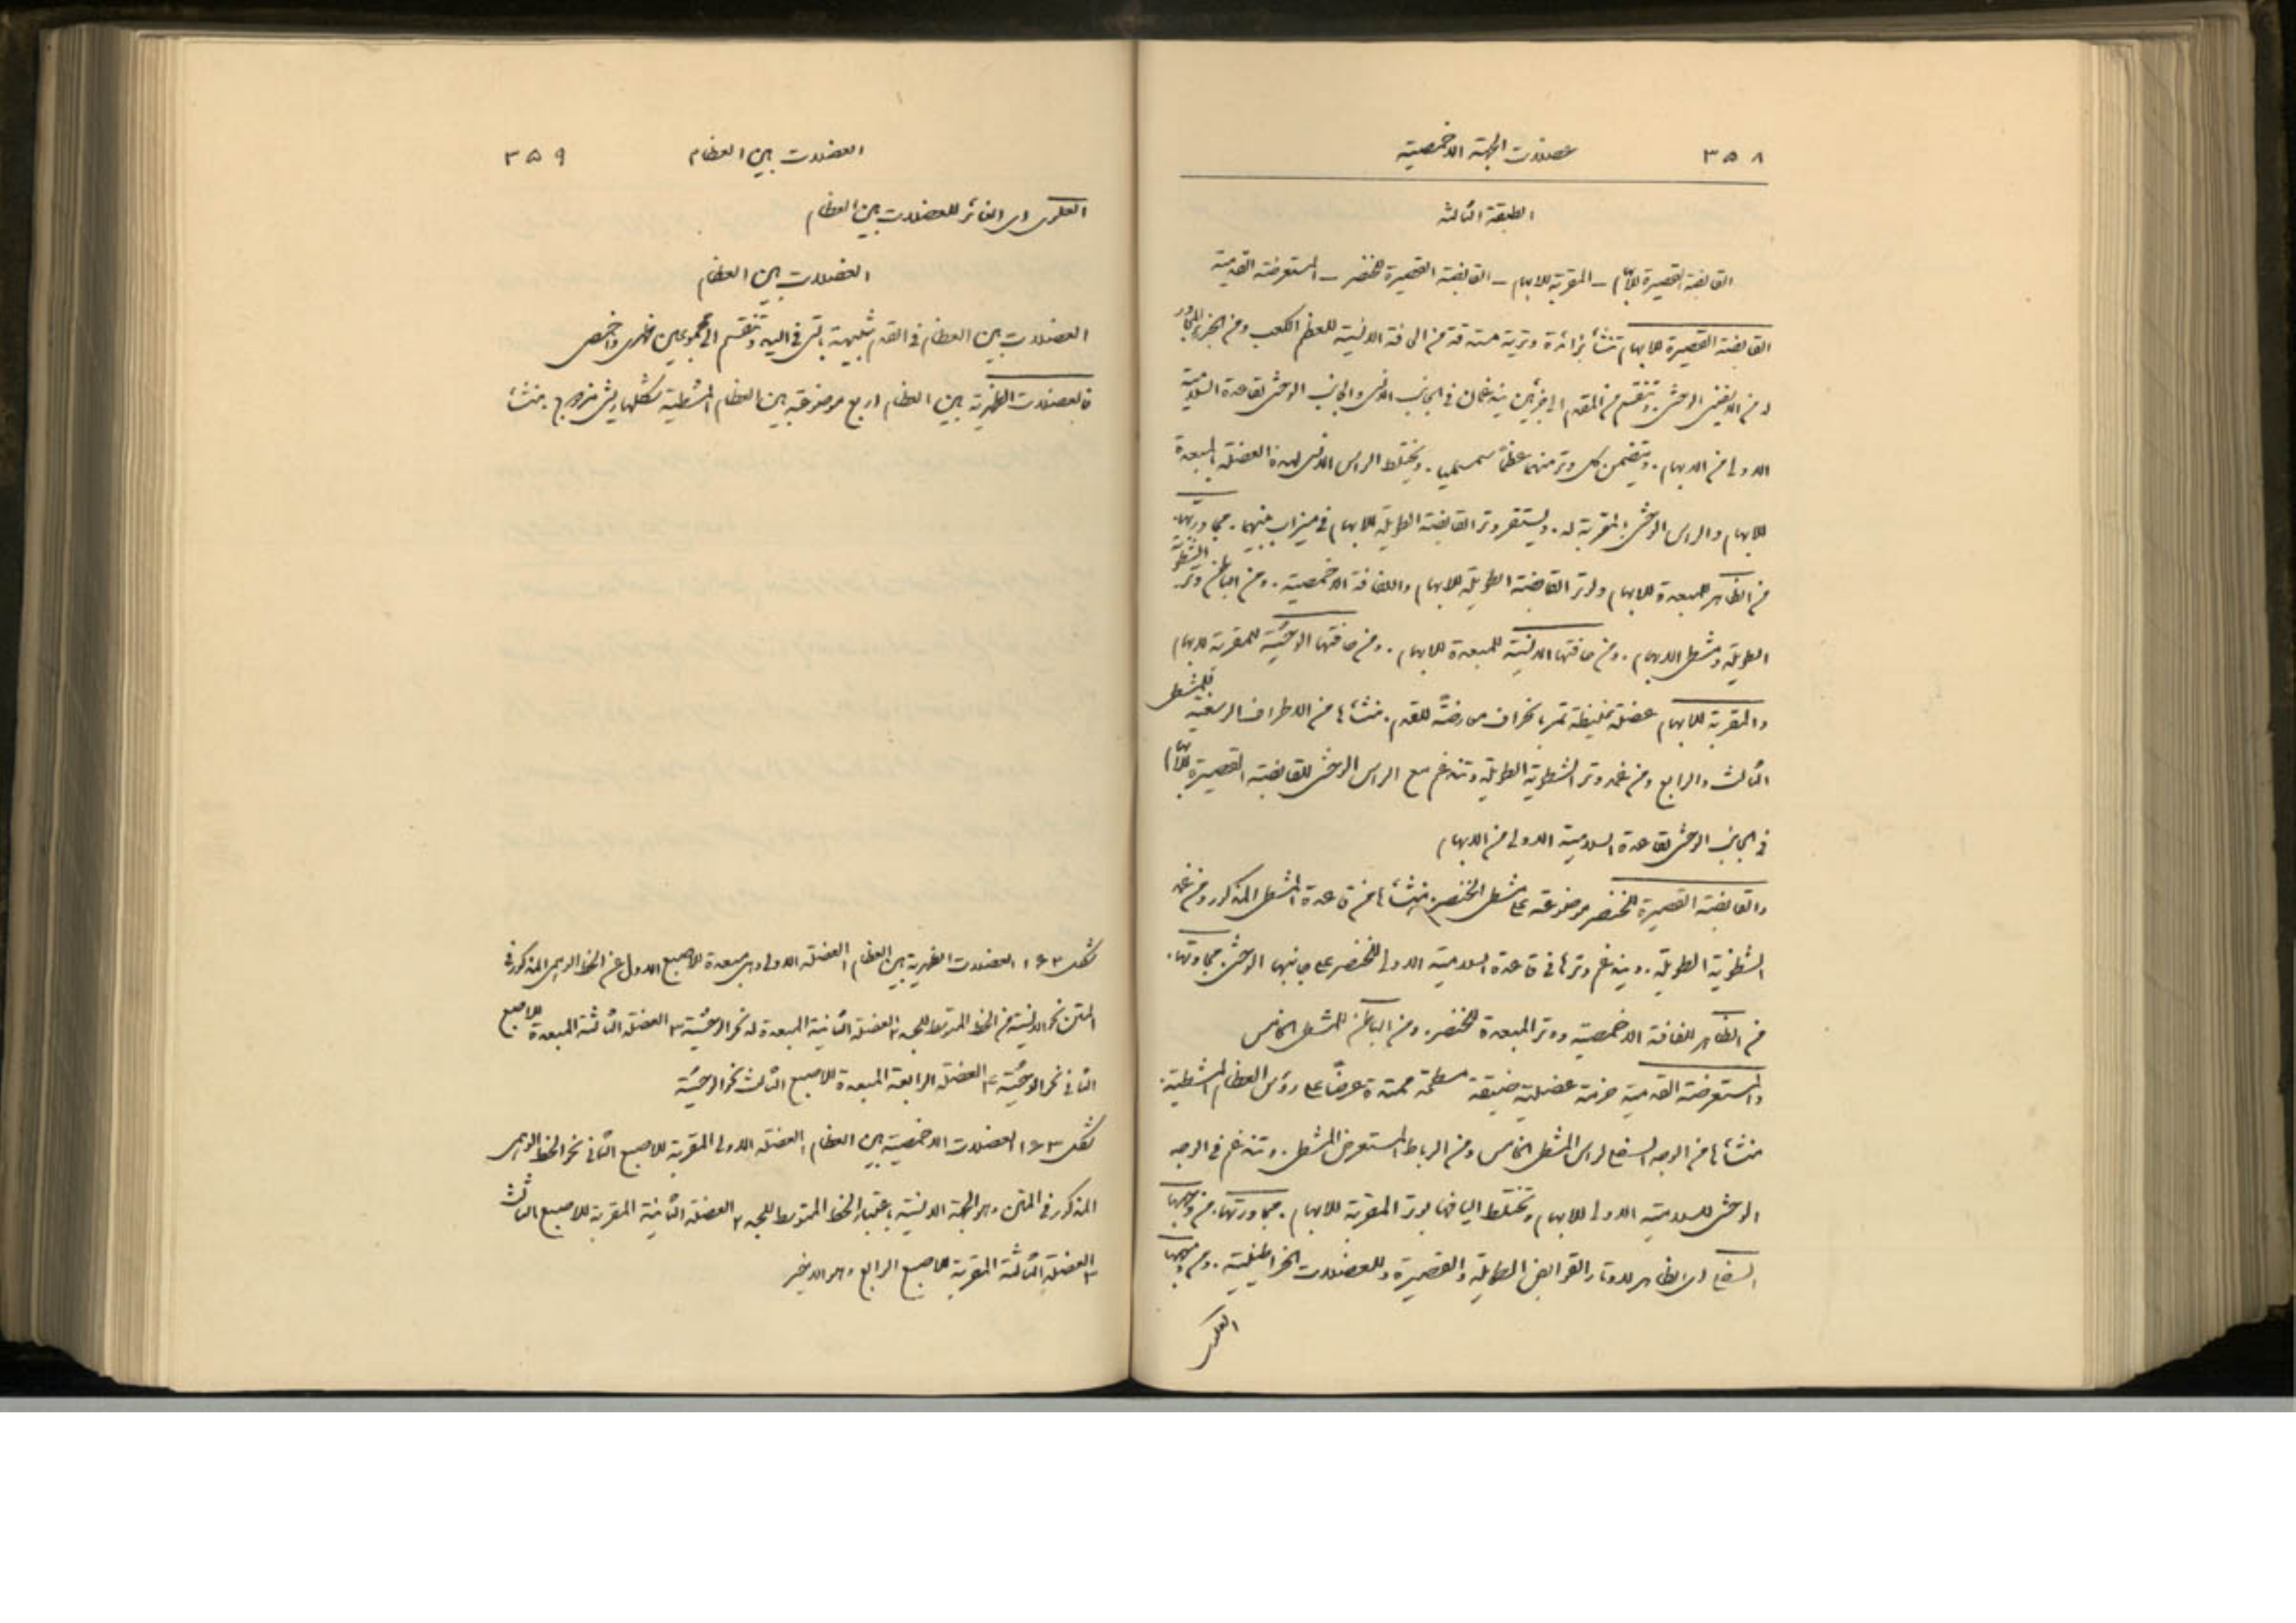 ٣٥٨
عضلات الجهة الاخمصية
الطبقة الثالثة
القابضة القصيرة للابهام – المقربة للابهام – القابضة القصيرة للخنصر – المستعرضة القدمية
القابضة القصيرة للابهام تنشأ بزائدة وترية مستدقة من الحافة الانسية للعظم الكعب ومن الجزء المجاور
له من الاسفيني الوحشي. وتنقسم من المقدم الى جزئين يندغمان في الجانب الانسي والجانب الوحشي لقاعدة السلامية
الاولى من الابهام. ويتضمن كل وتر منهما عظماً سمسمياً. ويختلط الراس الانسي لهذه العضلة بالمبعدة
للابهام والراس الوحشي بالمقربة له. ويستقر وتر القابضة الطويلة للابهام في ميزاب بينهما. مجاورتها.
من الظاهر للمبعدة للابهام ولوتر القابضة الطويلة للابهام واللفافة الاخمصية. ومن الباطن وتر الشظوية
الطويلة ومشط الابهام. ومن حافتها الانسية للمبعدة للابهام. ومن حافتها الوحشية للمقربة للابهام
والمقربة للابهام عضلة غليظة تمر بانحراف من رضة للقدم. منشأها من الاطراف الرسغية للمشط
الثالث والرابع ومن غمد وتر الشظوية الطويلة وتندغم مع الراس الوحشي للقابضة القصيرة للابهام
في الجانب الوحشي لقاعدة السلامية الاولى من الابهام
والقابضة القصيرة للخنصر موضوعة على مشط الخنصر. منشأها من قاعدة المشط المذكور ومن غمد
الشظوية الطويلة. ويندغم وترها في قاعدة السلامية الاولى للخنصر على جانبها الوحشي. مجاورتها.
من الظاهر للفافة الاخمصية ووتر المبعدة للخنصر. ومن الباطن للمشط الخامس
والمستعرضة القدمية حزمة عضلية ضيقة مسطحة ممتدة عرضاً على رؤس العظام المشطية.
منشأها من الوجه السفلي لراس المشط الخامس ومن الرباط المستعرض المشطي. وتندغم في الوجه
الوحشي للسلامية الاولى للابهام وتختلط اليافها بوتر المقربة للابهام. مجاورتها. من وجهها
السفلي اي الظاهر لاوتار القوابض الطويلة والقصيرة وللعضلات الخراطينية. ومن وجهها
العلوي
العضلات بين العظام
٣٥٩
العلوي اي الغائر للعضلات بين العظام
العضلات بين العظام
العضلات بين العظام في القدم شبيهة بالتي في اليد وتنقسم الى مجموعين ظهري واخمصي
فالعضلات الظهرية بين العظام اربع موضوعة بين العظام المشطية شكلها ريشي مزدوج. منشأ
شكل ١٦٣ العضلات الظهرية بين العظام ١ العضلة الاولى وهي مبعدة للاصبع الاول عن الخط الوهمي المذكور في
المتن نحو الانسية من الخط المتوسط للجسم ٢ العضلة الثانية المبعدة له نحو الوحشية ٣ العضلة الثالثة المبعدة للاصبع
الثاني نحو الوحشية ٤ العضلة الرابعة المبعدة للاصبع الثالث نحو الوحشية
شكل ١٦٣ العضلات الاخمصية بين العظام ١ العضلة الاولى المقربة للاصبع الثاني نحو الخط الوهمي
المذكور في المتن وهو الجهة الانسية باعتبار الخط المتوسط للجسم ٢ العضلة الثانية المقربة للاصبع الثالث
٣ العضلة الثالثة المقربة للاصبع الرابع وهو الاخير